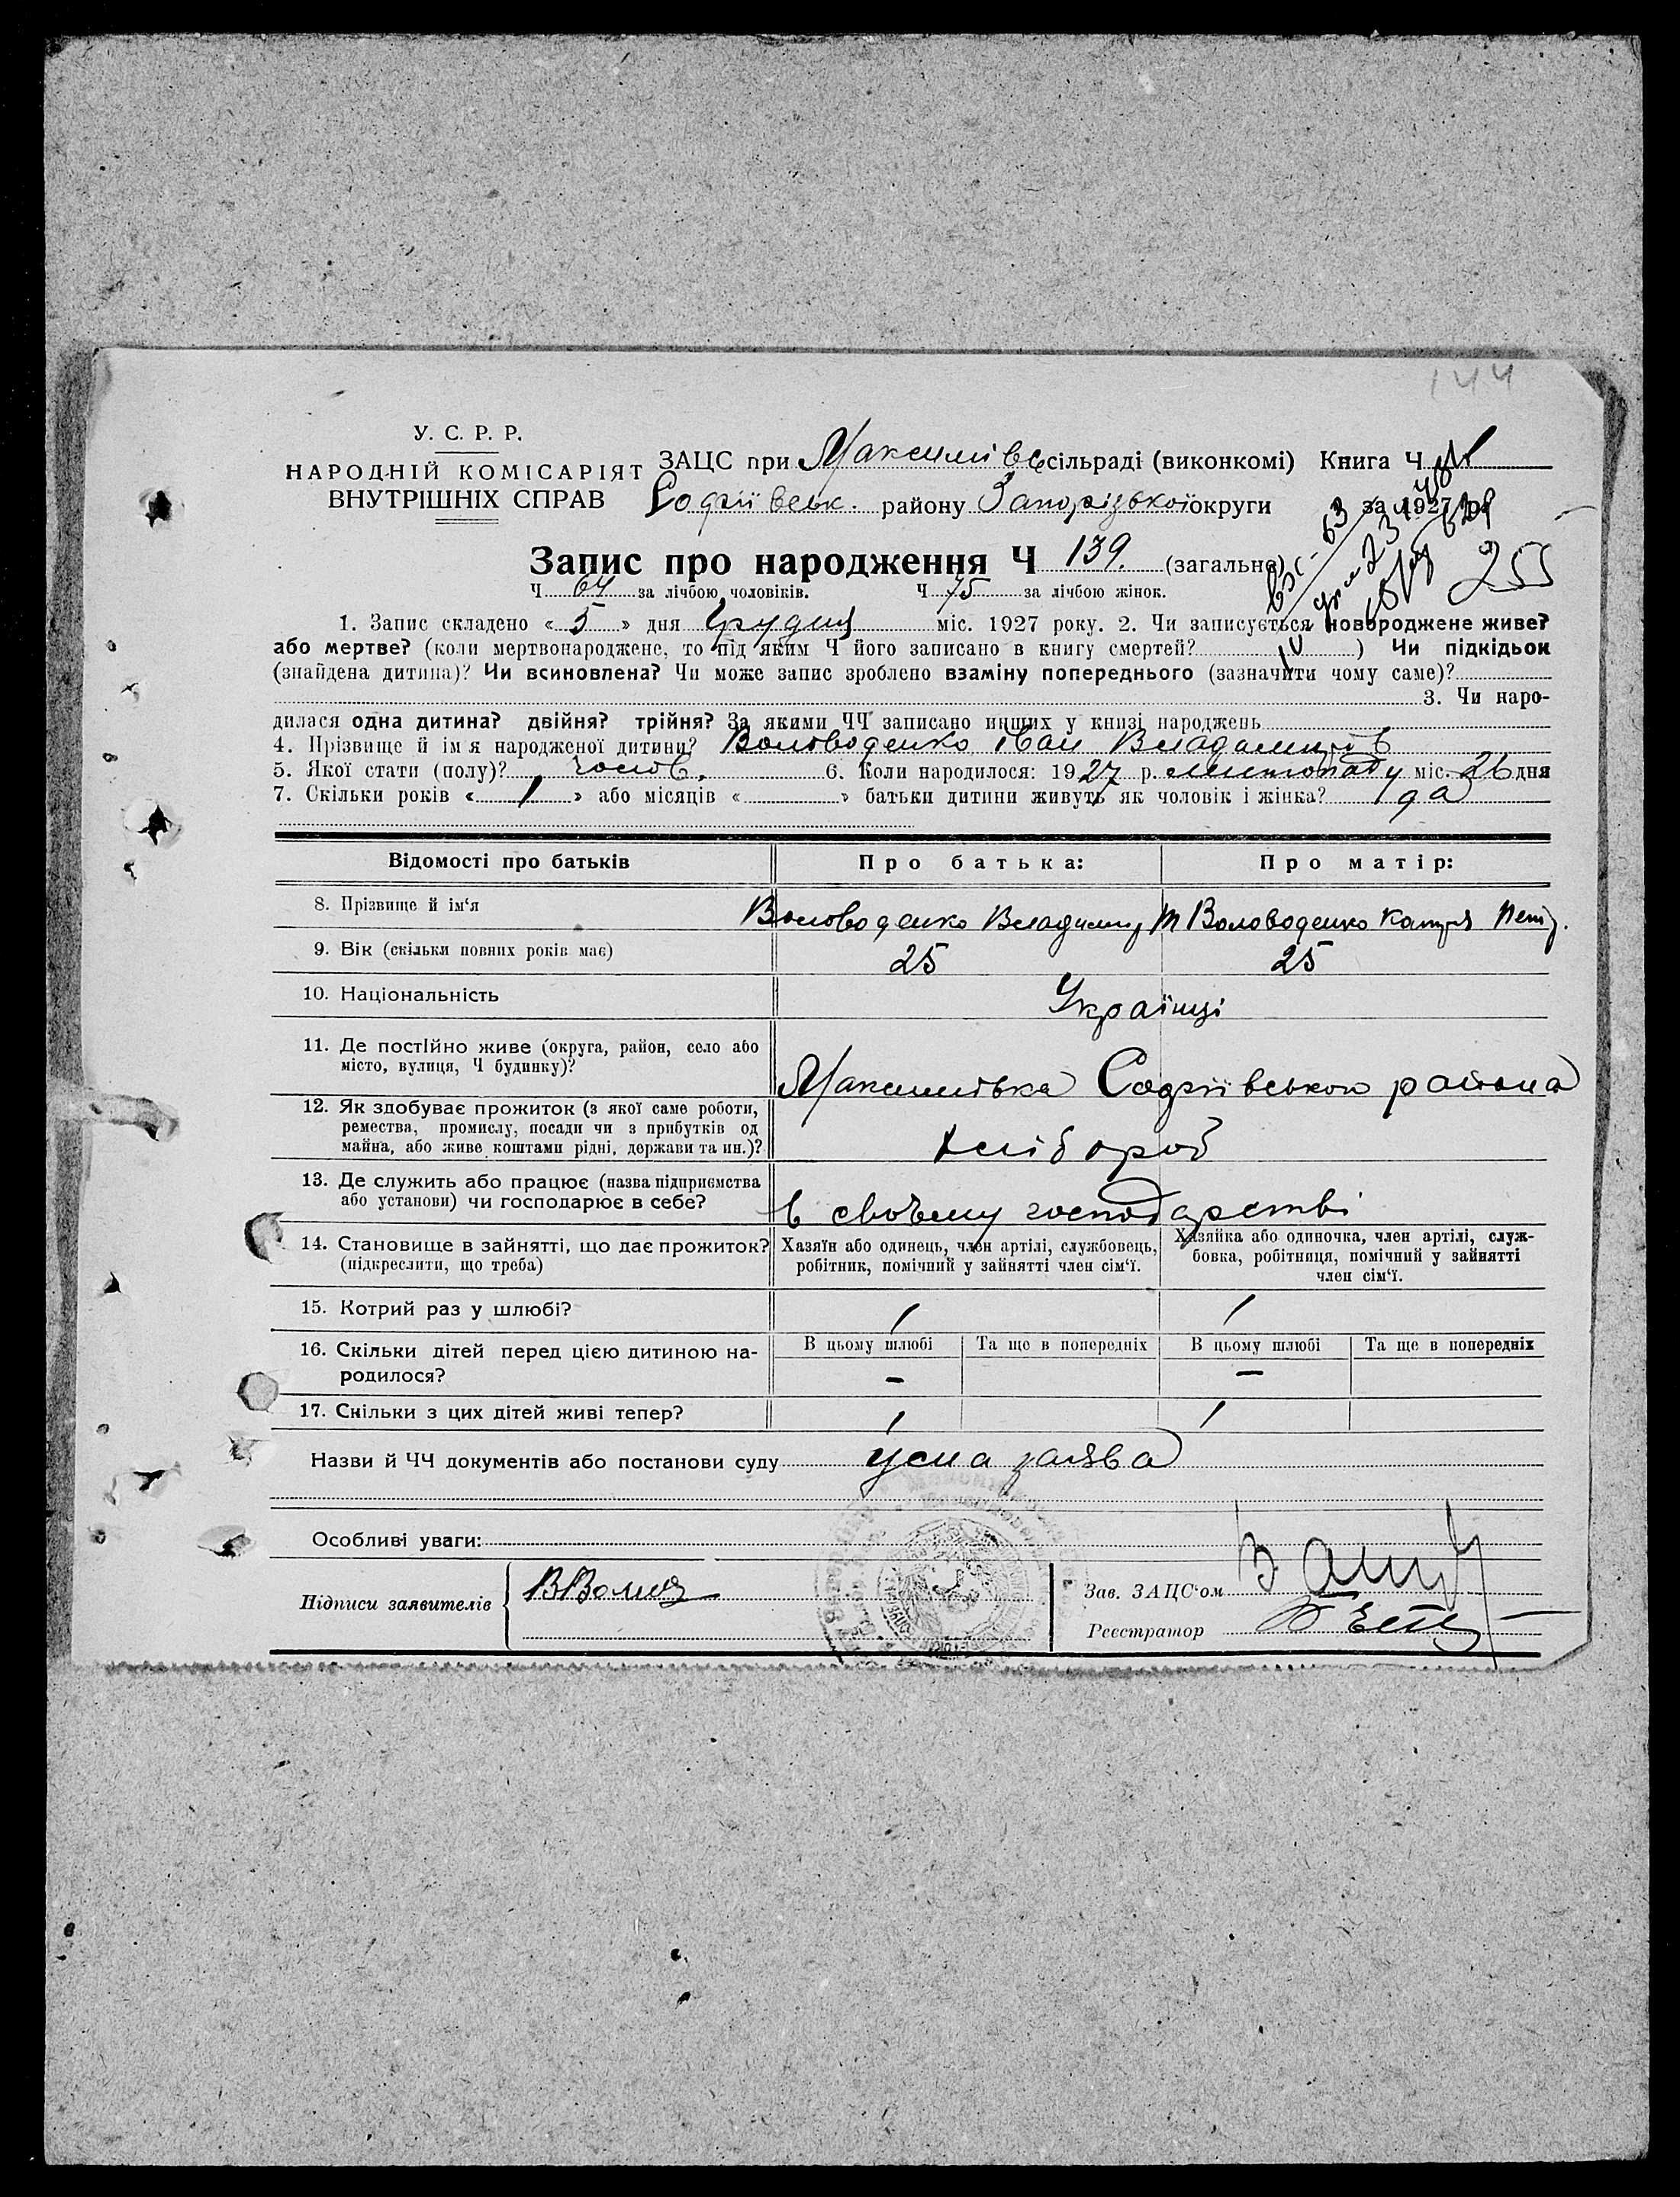 144
У. С. Р. Р.
НАРОДНІЙ КОМІСАРІЯТ
ВНУТРІШНІХ СПРАВ
ЗАЦС при Максимівс сільраді (виконкомі) Книга Ч
Софіївськ. району Запорізької округи за 1927 р.
255
Запис про народження Ч 139. (загальне)
Ч 64 за лічбою чоловіків. Ч 75 за лічбою жінок.
1. Запис складено « 5 » дня Грудня міс. 1927 року. 2. Чи записується новороджене живе?
або мертве? (коли мертвонароджене, то під яким Ч його записано в книгу смертей? ) Чи підкідьок
(знайдена дитина)? Чи всиновлена? Чи може запис зроблено взаміну попереднього (зазначити чому саме)?
3. Чи наро-
дилася одна дитина? двійня? трійня? За якими ЧЧ записано инших у книзі народжень
4. Прізвище й імя народженої дитини? Воловоденко Іван Владимиров
5. Якої стати (полу)? чолов. 6. Коли народилося: 1927 р. листопаду міс. 26 дня
7. Скільки років « 1 » або місяців « » батьки дитини живуть як чоловік і жінка? да
Відомості про батьків Про батька: Про матір:
8. Прізвище й ім‘я Воловоденко Владимир М Воловоденко Катря Петр.
9. Вік (скільки повних років має) 25 25
10. Національність Українці
11. Де постійно живе (округа, район, село або
місто, вулиця, Ч будинку)? Максимівка Софіївського района
12. Як здобуває прожиток (з якої саме роботи,
ремества, промислу, посади чи з прибутків од
майна, або живе коштами рідні, держави та ин.)? хлібороб
13. Де служить або працює (назва підприємства
або установи) чи господарює в себе? в своъму господарстві
14. Становище в зайнятті, що дає прожиток?
(підкреслити, що треба)
Хазяїн або одинець, член артілі, службовець,
робітник, помічний у зайнятті член сім‘ї.
Хазяйка або одиночка, член артілі, служ-
бовка, робітниця, помічний у зайнятті
член сім‘ї.
15. Котрий раз у шлюбі? 1 1
16. Скільки дітей перед цією дитиною на-
родилося?
В цьому шлюбі Та ще в попередніх В цьому шлюбі Та ще в попередніх
– –
17. Скільки з цих дітей живі тепер? 1 1
Назви й ЧЧ документів або постанови суду усна заява
Особливі уваги:
Підписи заявителів
Зав. ЗАЦС‘ом
Реєстратор